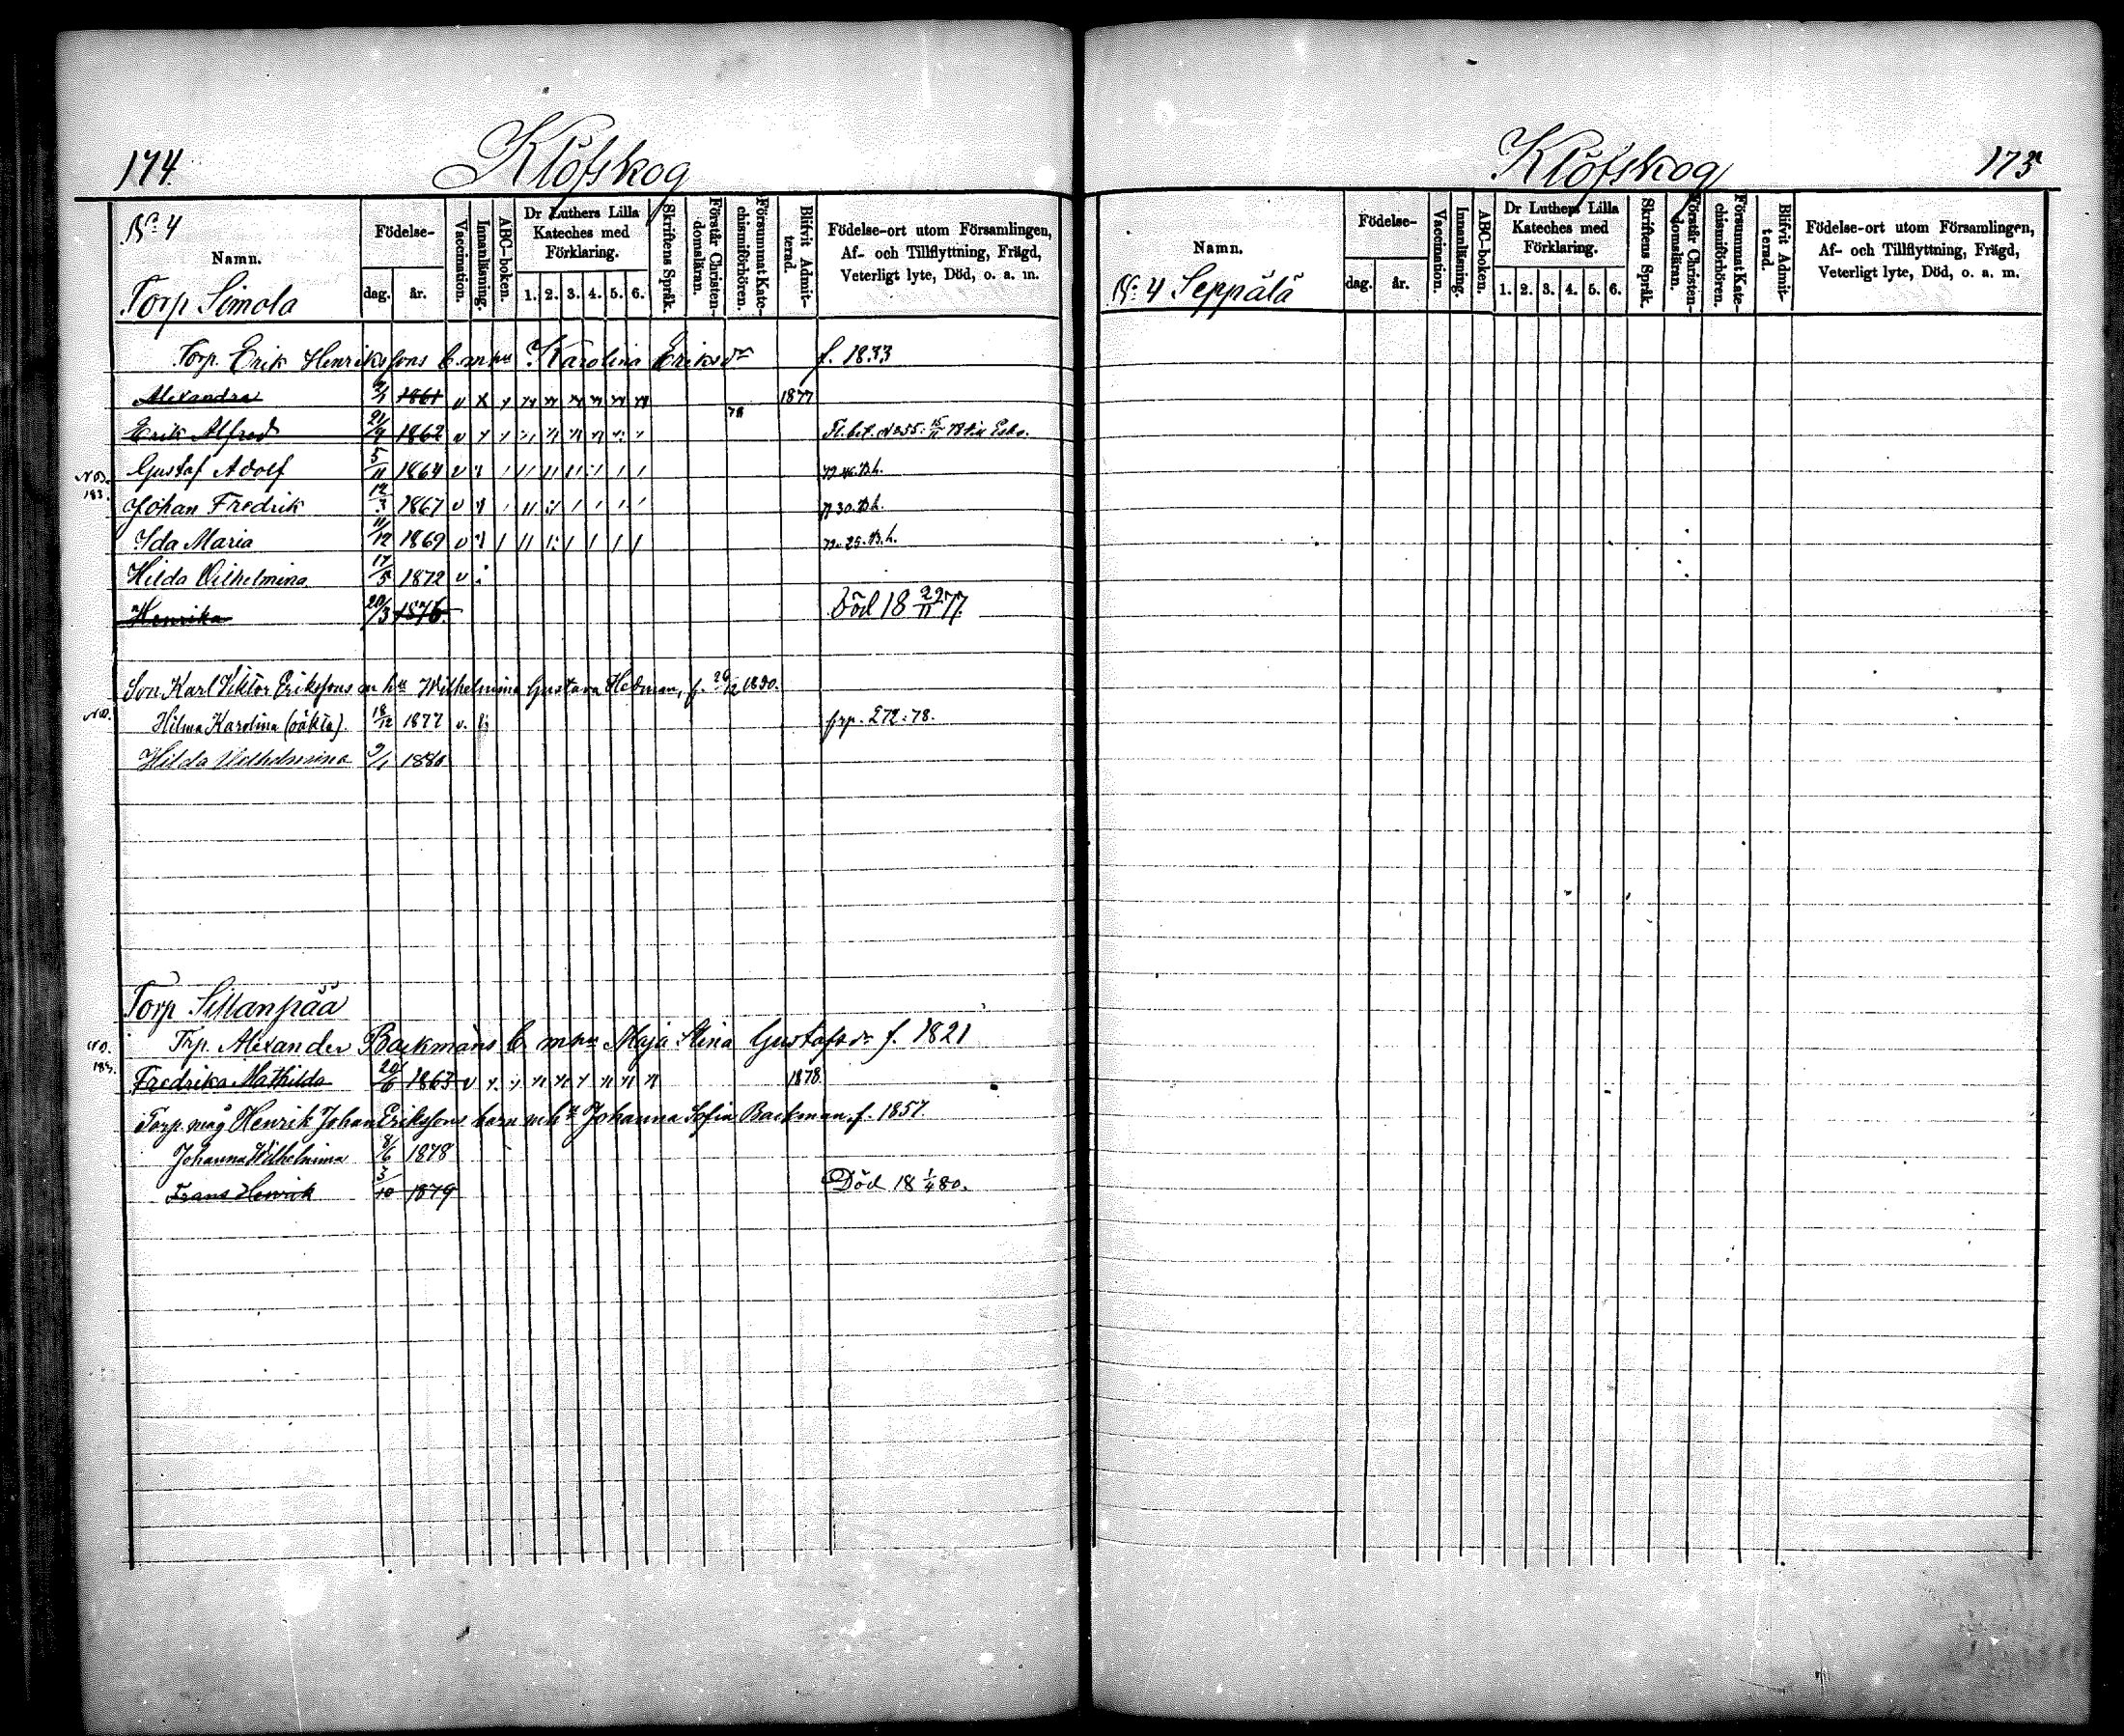 174.
Klöfskog
No 4
Namn.
Torp Simola
Födelse-
dag. år.
Vaccination.
Innanläsning.
ABC-boken.
Dr Luthers Lilla Kateches med Förklaring.
1. 2. 3. 4. 5. 6.
Skriftens Språk.
Förstår Christendomsläran.
Försummat Katechismiförhören.
Blifvit Admitterad.
Födelse-ort utom Församlingen,
Af- och Tillflyttning, Frägd,
Veterligt lyte, Död, o. a. m.
Torp. Erik Henrikssons b. m hu Karolina Eriksdr f. 1833
Alexandra 1861 v 1877
Erik Alfred 21/9 1862 v 78
Gustaf Adolf 5/11 1864 v
Johan Fredrik 12/3 1867 v
Ida Maria 11/12 1869 v
Hilda Vilhelmina 17/5 1872 v
Henrika 20/3 1876. Död 18 29/11 77
Son Karl Viktor Erikssons m hu Wilhelmina Gustava Hedman, f.
Hilma Karolina (oäkta). 18/12 1877 v. frp. 272:78.
Hilda Vilhelmina 9/1 1880
Torp Sillanpää
Trp. Alexander Backmans b m hu Maja Stina Gustafsdr f. 1821
Fredrika Mathilda 20/6 1863 v 1878
Torp. måg Henrik Johan Erikssons barn m hu Johanna Sofia Backman, f. 1857.
Johanna Wilhelmina 8/6 1878
Frans Henrik 3/10 1879 Död 18 1/4 80.
Klöfskog
175
Namn.
No 4 Seppälä
Födelse-
dag. år.
Vaccination.
Innanläsning.
ABC-boken.
Dr Luthers Lilla Kateches med Förklaring.
1. 2. 3. 4. 5. 6.
Skriftens Språk.
Förstår Christendomsläran.
Försummat Katechismiförhören.
Blifvit Admitterad.
Födelse-ort utom Församlingen,
Af- och Tillflyttning, Frägd,
Veterligt lyte, Död, o. a. m.